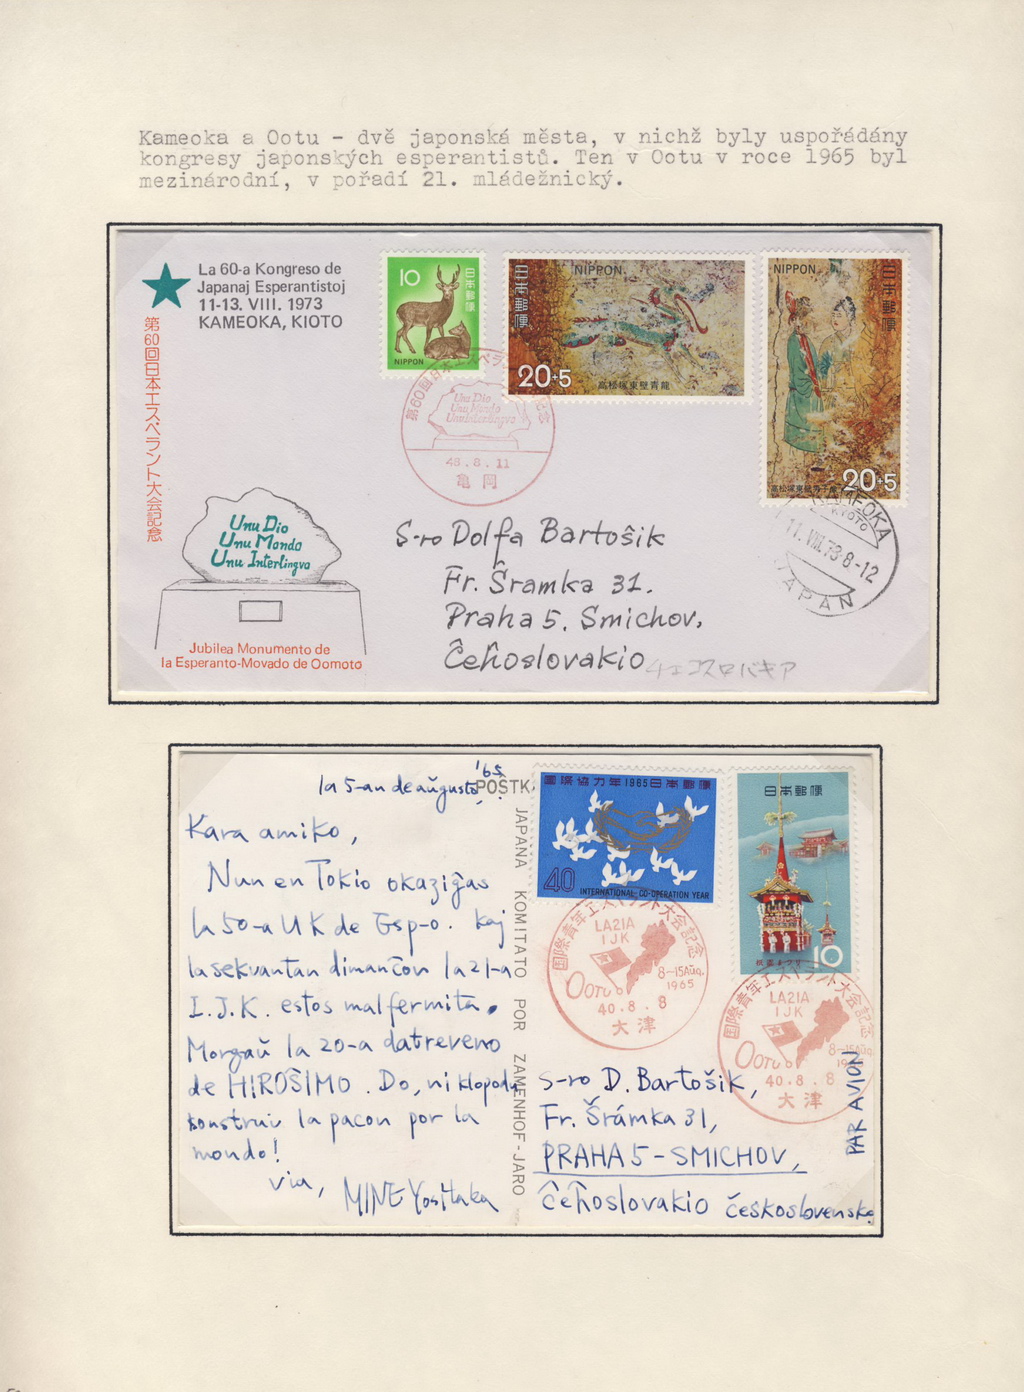 Kameoka a Ootu - dvě japonská města, v nichž byly uspořádány
kongresy japonských esperantistů. Ten v Ootu v roce 1965 byl
mezinárodní, v pořadí 21. mládežnický.
La 60-a Kongreso de
Japanaj Esperantistoj
11-13. VIII. 1973
KAMEOKA, KIOTO
第60回日本エスペラント大会記念
10
日本郵便
NIPPON
NIPPON
日本郵便
20+5
高松塚東壁青龍
NIPPON
日本郵便
20+5
Unu Dio
Unu Mondo
Unu Interlingvo
48.8.11
亀岡
KAMEOKA
KYOTO
11. VIII. 73. 8-12
JAPAN
Unu Dio
Unu Mondo
Unu Interlingvo
Jubilea Monumento de
la Esperanto-Movado de Oomoto
S-ro Dolfa Bartoŝik
Fr. Ŝramka 31.
Praha 5. Smichov,
Ĉeĥoslovakio チェコスロバキア
la 5-an de aŭgusto, '65.
Kara amiko,
Nun en Tokio okaziĝas
la 50-a UK de Esp-o. kaj
la sekvantan dimanĉon la 21-a
I.J.K. estos malfermita.
Morgaŭ la 20-a datreveno
de HIROŜIMO. Do, ni klopodu
konstrui la pacon por la
mondo!
via, MINE Yositaka
POŜTK
JAPANA KOMITATO POR ZAMENHOF-JARO
国際協力年1965日本郵便
40
INTERNATIONAL CO-OPERATION YEAR
日本郵便
祇園まつり
10
国際青年エスペラント大会記念
LA21A
IJK
8-15Aŭg.
1965
OOTU
40.8.8
大津
国際青年エスペラント大会記念
LA21A
IJK
8-15Aŭg.
OOTU
40.8.8
大津
S-ro D. Bartoŝik,
Fr. Ŝrámka 31,
PRAHA 5 - SMICHOV,
Ĉeĥoslovakio Československo
PAR AVION